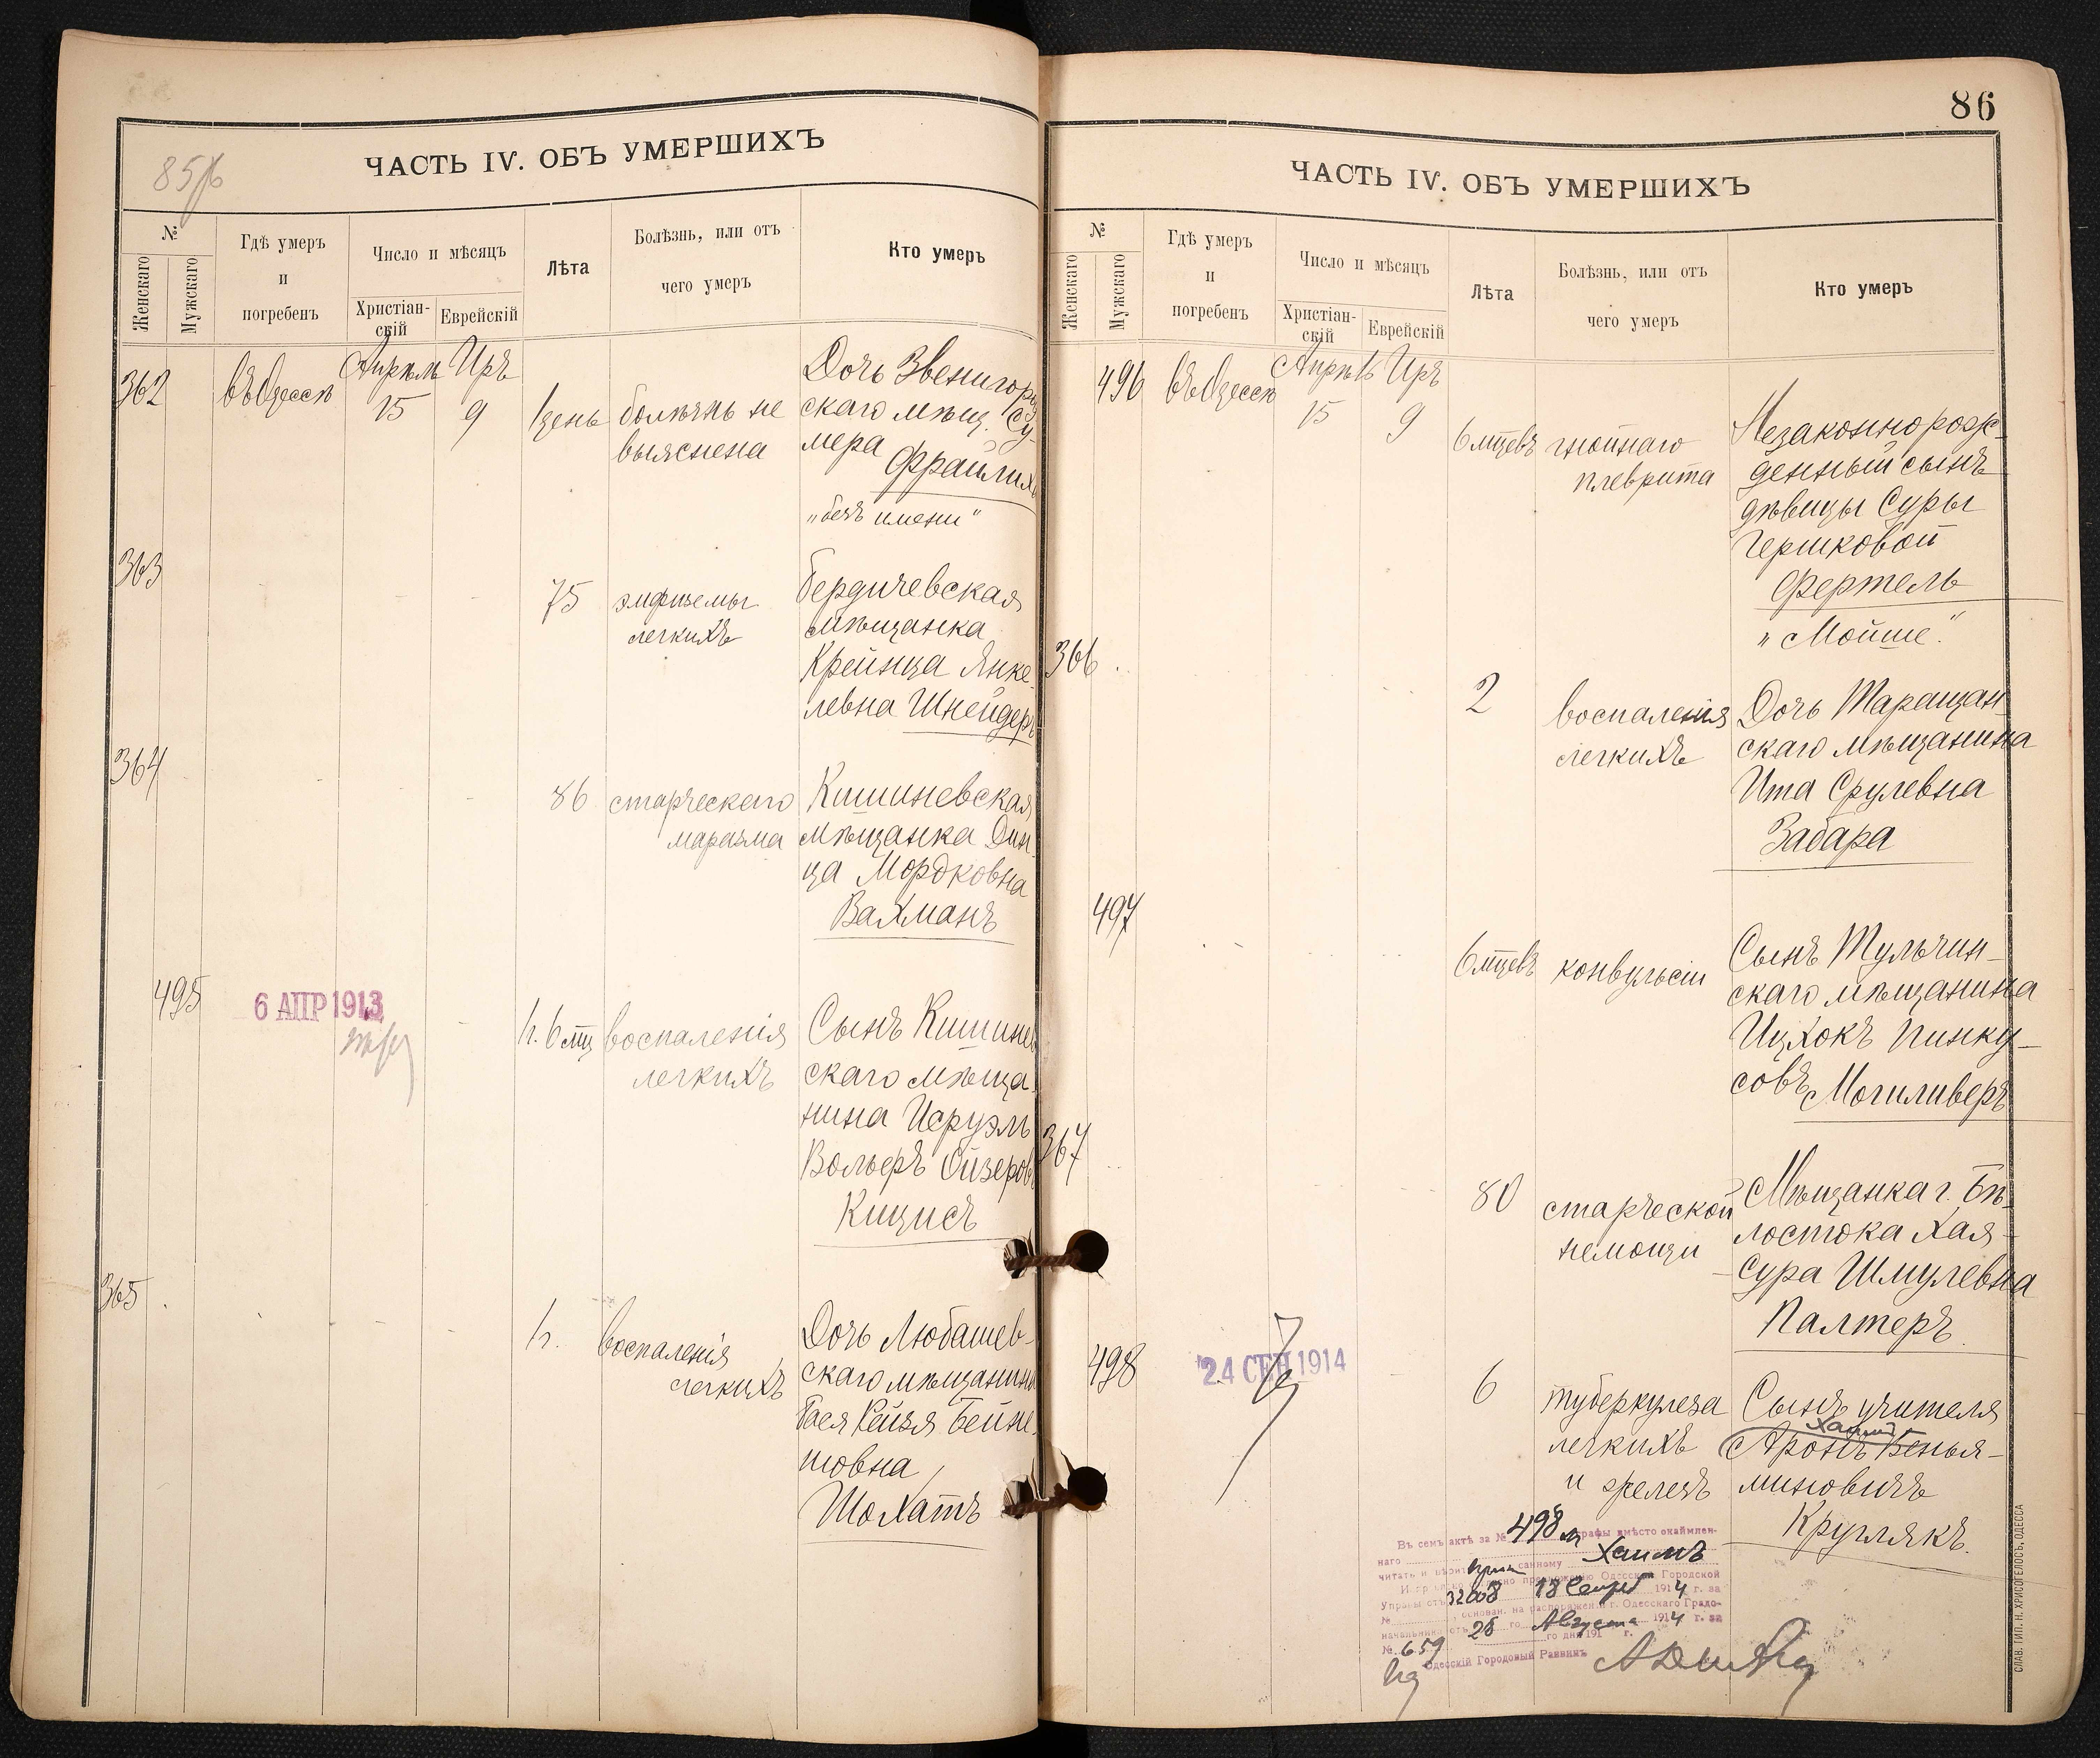 85/b
ЧАСТЬ IV. ОБЪ УМЕРШИХЪ
№
Женскаго
Мужскаго
Гдѣ умеръ
и
погребенъ
Число и мѣсяцъ
Христіан-
скій
Еврейскій
Лѣта
Болѣзнь, или отъ
чего умеръ
Кто умеръ
362
въ Одессѣ
Апрѣль
15
Иръ
9
1 день
болѣзнь не
выяснена
Дочь Звенигород
скаго мѣщ. Су-
мера
Фрайлих
"безъ имени"
363
75
эмфиземы
легкихъ
Бердичевская
мѣщанка
Крейнца Янке-
левна Шнейдеръ
364
86
старческаго
маразма
Кишиневская
мѣщанка Дин-
ца Мордковна
Вахманъ
495
6 АПР 1913
1г. 6 мц
воспаленія
легкихъ
Сынъ Кишинев
скаго мѣща-
нина Исруэль
Вольеръ Ойзеровъ
Кицисъ
365
1г.
воспаленія
легкихъ
Дочь Любашев-
скаго мѣщанина
Бася Рейзя Бейне-
шовна
Шохатъ
86
ЧАСТЬ IV. ОБЪ УМЕРШИХЪ
№
Женскаго
Мужскаго
Гдѣ умеръ
и
погребенъ
Число и мѣсяцъ
Христіан-
скій
Еврейскій
Лѣта
Болѣзнь, или отъ
чего умеръ
Кто умеръ
496
въ Одессѣ
Апрѣль
15
Иръ
9
6 мцевъ
гнойнаго
плеврита
Незаконнорож-
денный сынъ
дѣвицы Суры
Гершковой
Фертель
"Мойше"
366
2
воспаленія
легкихъ
Дочь Таращан-
скаго мѣщанина
Ита Срулевна
Забара
497
6 мцевъ
конвульсіи
Сынъ Тульчин-
скаго мѣщанина
Ицхокъ Пинку-
совъ Могиливеръ
367
80
старческой
немощи
Мѣщанка г. Бѣ-
лостока Хая-
Сура Шмулевна
Палтеръ
498
24 СЕН 1914
6
туберкулеза
легкихъ
и железъ
Сынъ учителя
Хаимъ
Аронъ Бенья-
миновичъ
Круглякъ
Въ семъ актѣ за № 498 м графы вмѣсто окаймлен-
наго Хаимъ
читать и
Городской
Управы отъ 18 Сентяб 1914 г. за
№ 32008, основан. на распоряженіи г. Одесскаго Градо-
начальника отъ 28 го Августа 1914 г. за
№ 659
Одесскій Городовый Раввинъ
СЛАВ. ТИП. Н. ХРИСОГЕЛОСЪ, ОДЕССА